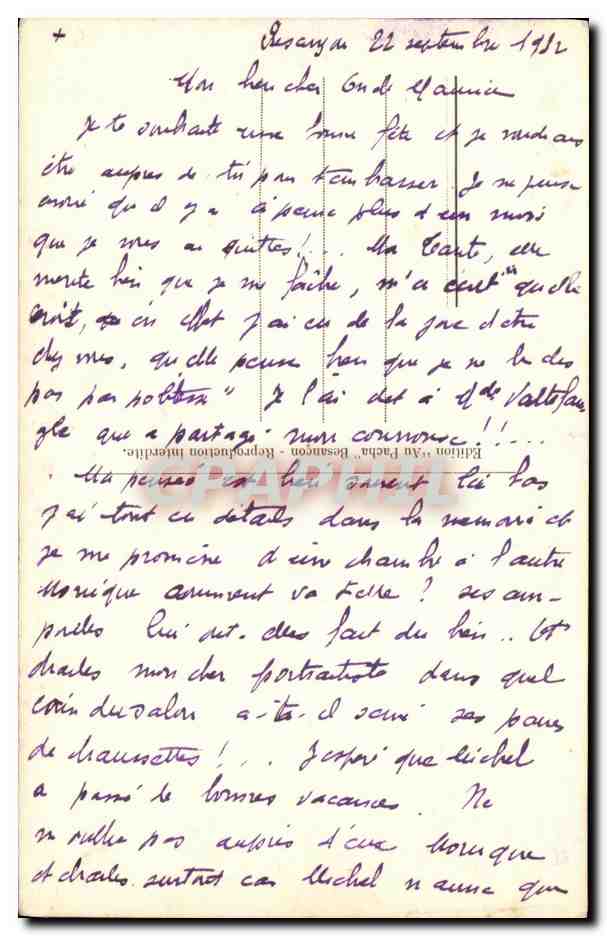 + Besançon 22 septembre 1952
Mon bien cher Oncle Maurice
Je te souhaite une bonne fête et je voudrais
être auprès de toi pour t'embrasser. Je ne puis
croire qu'il y a à peine plus d'un mois
que je vous ai quittés!... Ma Tante, elle
mérite bien que je me fâche, m'a écrit "qu'elle
croit, en effet j'ai eu de la joie d'être
chez vous, qu'elle pense bien que je ne le dis
pas par politesse" Je l'ai dit à Mde Valtefau
gle qui a partagé mon courroux!!...
Edition "Au Pacha" Besançon - Reproduction Interdite.
CPAPHIL
Ma pensée est bien souvent là bas
j'ai tout ces détails dans la mémoire et
je me promène d'une chambre à l'autre
Monique comment va t-elle? ses am-
poules lui ont-elles fait du bien.. Et
Charles mon cher portraitiste dans quel
coin du salon a-t-il semé ses paires
de chaussettes!... J'espère que Michel
a passé de bonnes vacances. Ne
m'oublie pas auprès d'eux Monique
et Charles surtout car Michel n'aime que